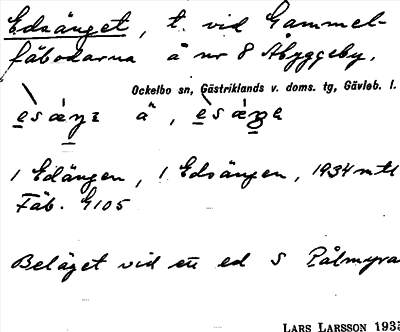 Edsänget, t. vid Gammel-
fäbodarna å nr 8 Åbyggeby.
Ockelbo sn, Gästriklands v. doms. tg, Gävleb. l.
i Edängen, i Edsängen, 1934 mtl
Fäb. G105
Beläget vid ett ed S Pålmyra
LARS LARSSON 1933